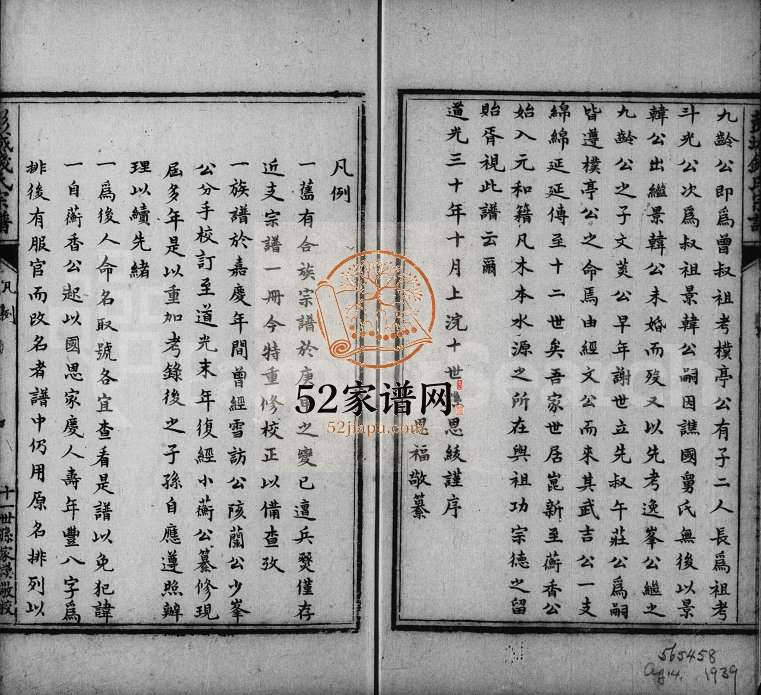 九齡公即爲曾叔祖考樸亭公有子二人長爲祖考
斗光公次爲叔祖景韓公嗣因譙國舅氏無後以景
韓公出繼景韓公未婚而歿又以先考逸峯公繼之
九齡公之子文莢公早年謝世立先叔午莊公爲嗣
皆遵樸亭公之命焉由經文公而來其武吉公一支
綿綿延延傳至十二世矣吾家世居崑新至蘅香公
始入元和籍凡木本水源之所在與祖功宗德之留
貽胥視此譜云爾
道光三十年十月上浣十世 思紱謹序
恩福敬纂
彭城錢氏宗譜
凡例
十一世孫家 敬校
凡例
一舊有合族宗譜於庚 之變已遭兵燹僅存
近支宗譜一冊今特重修校正以備查攷
一族譜於嘉慶年間曾經雪訪公陔蘭公少峯
公分手校訂至道光末年復經小蘅公纂修現
屆多年是以重加考錄後之子孫自應遵照辦
理以續先緒
一爲後人命名取號各宜查看是譜以免犯諱
一自蘅香公起以國思家慶人壽年豐八字爲
排後有服官而改名者譜中仍用原名排列以
52家谱网
52jiapu.com
565458
Ag 14, 1939